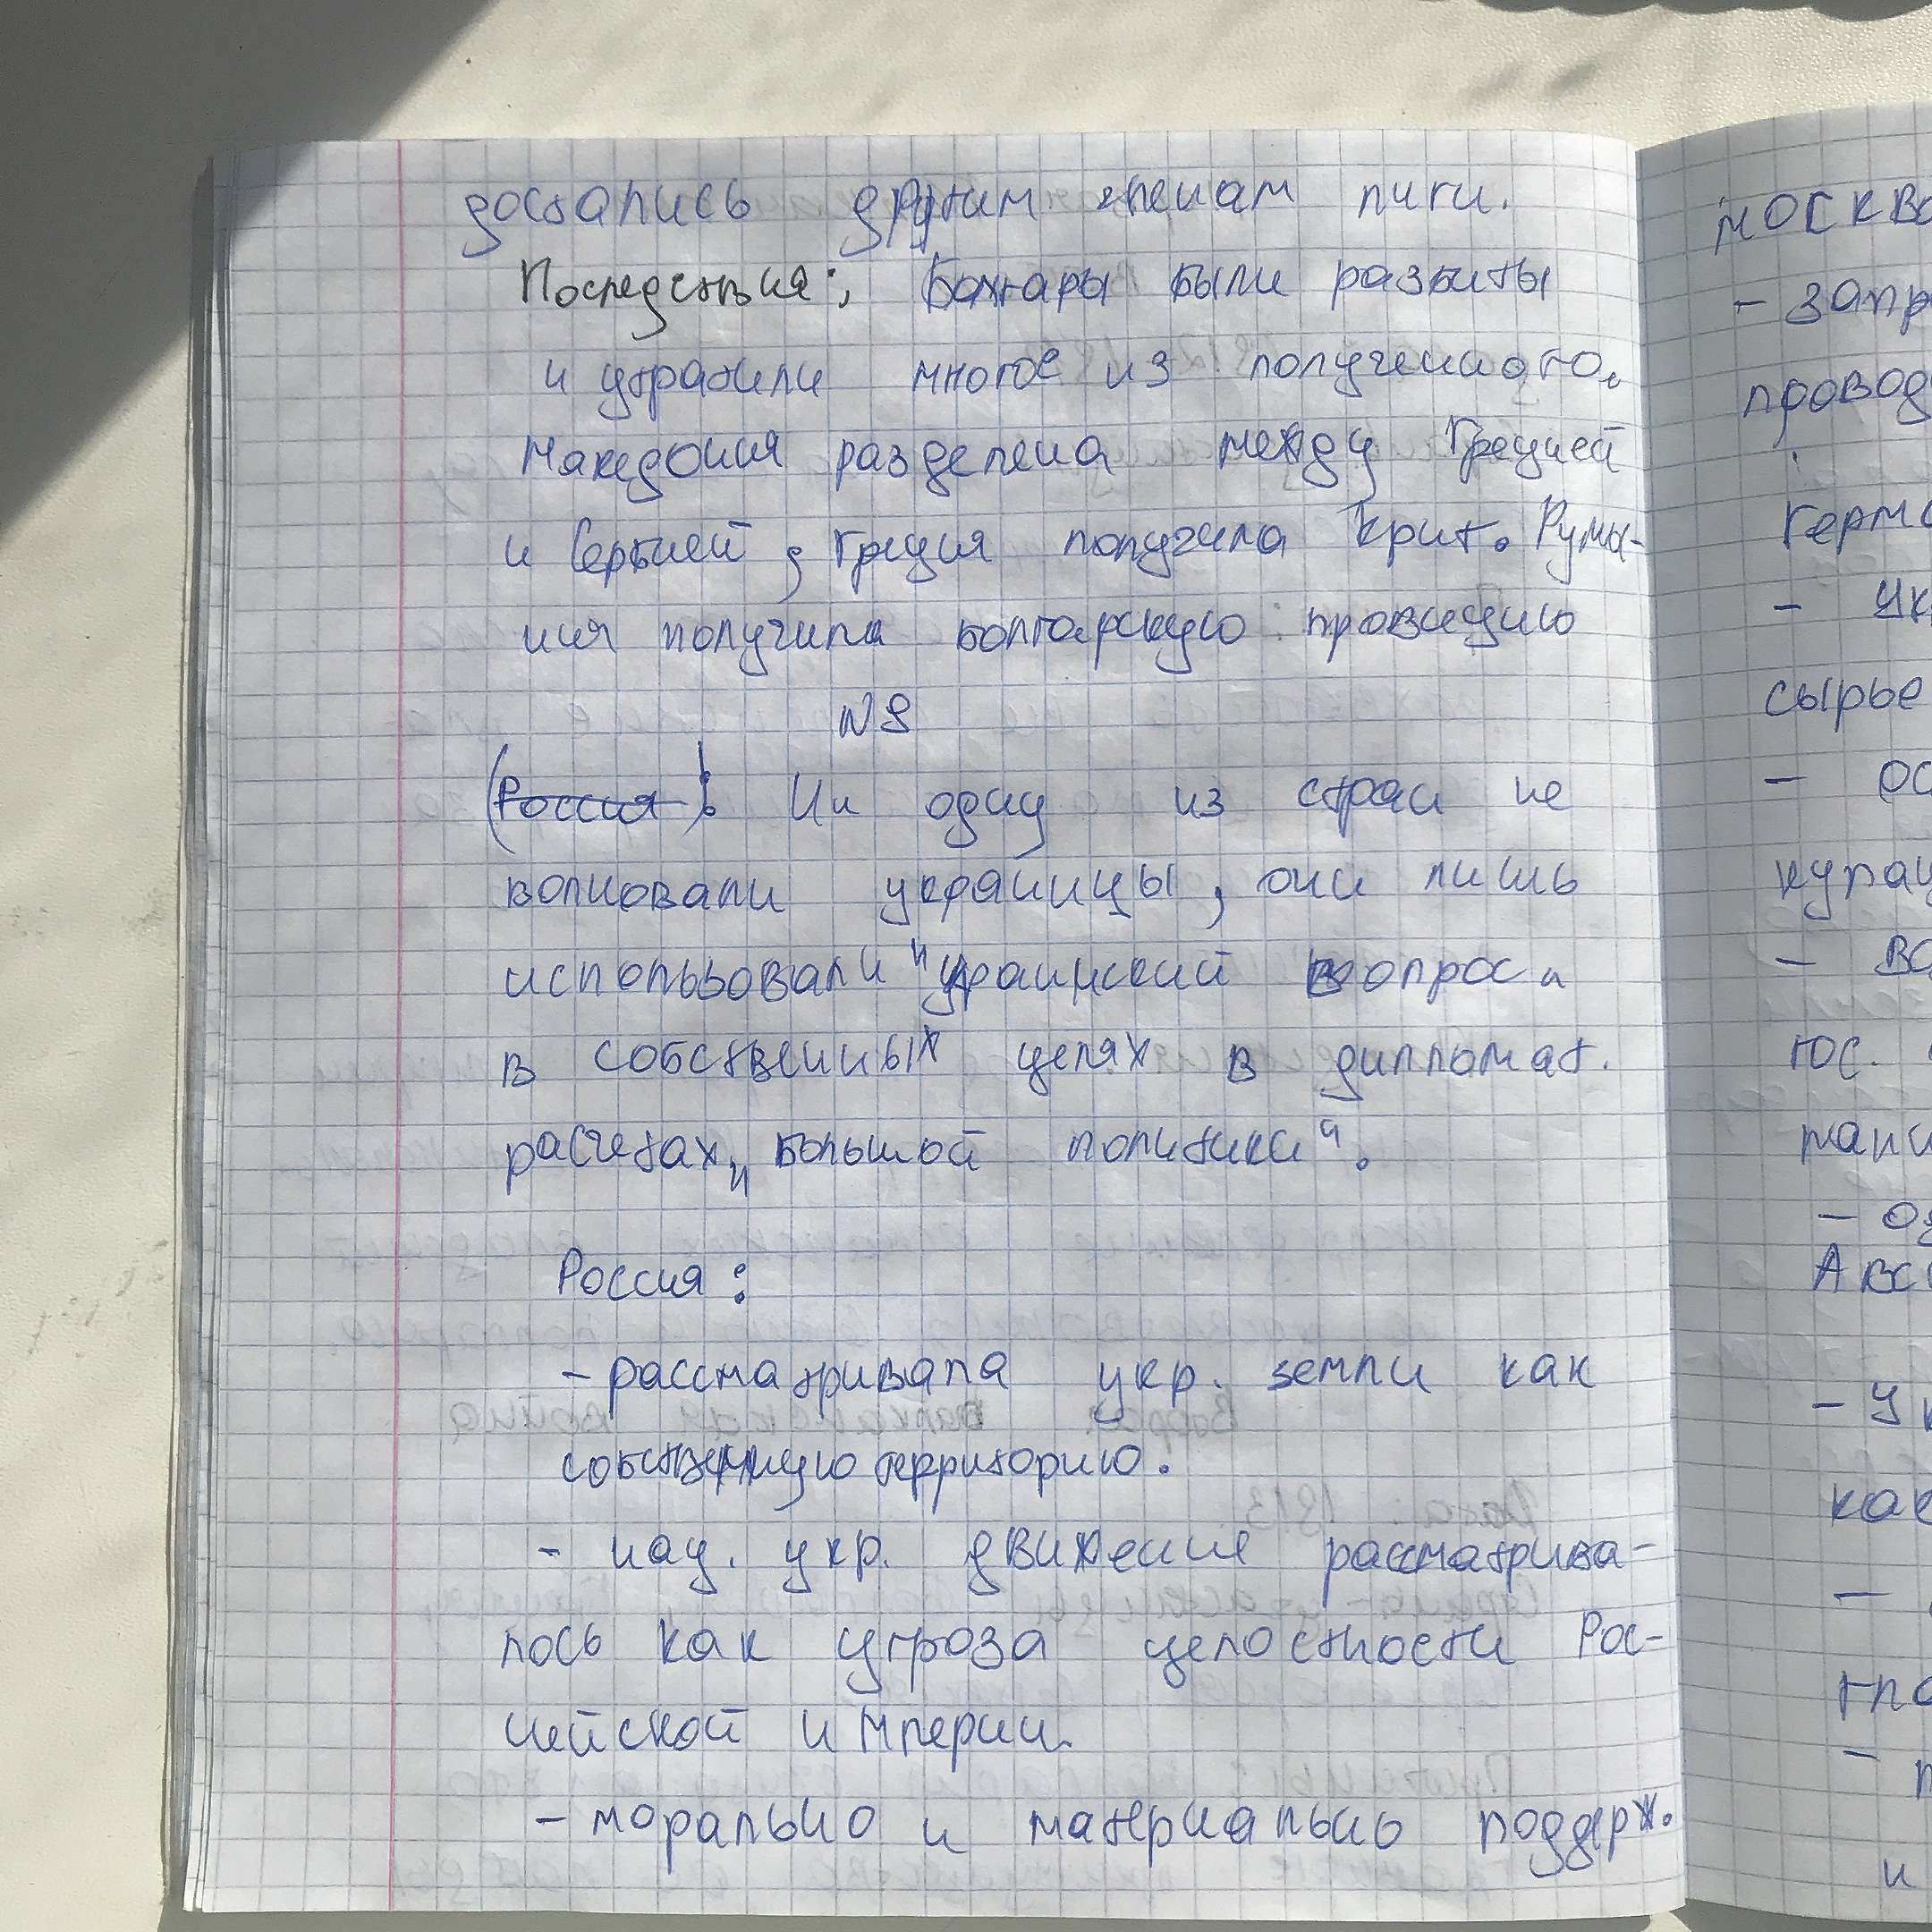 достались другим членам лиги.
Последствия: Болгары были разбиты
и утратили многое из полученного.
Македония разделена между Грецией
и Сербией, Греция получила Крит. Румы-
ния получила болгарскую провинцию
N 8
(Россия): Ни одну из стран не
волновали украинцы, они лишь
использовали "украинский вопрос"
в собственных целях в дипломат.
расчетах „большой политики“.
Россия:
- рассматривала укр. земли как
собственную территорию.
- нац. укр. движение рассматрива-
лось как угроза целостности Рос-
сийской империи.
- морально и материально поддерж.
москво
- запр
провод
герма
- Ук
сырье
- ос
купац
- во
гос.
- оз
Авс
- Ук
как
-
гла
- п
и